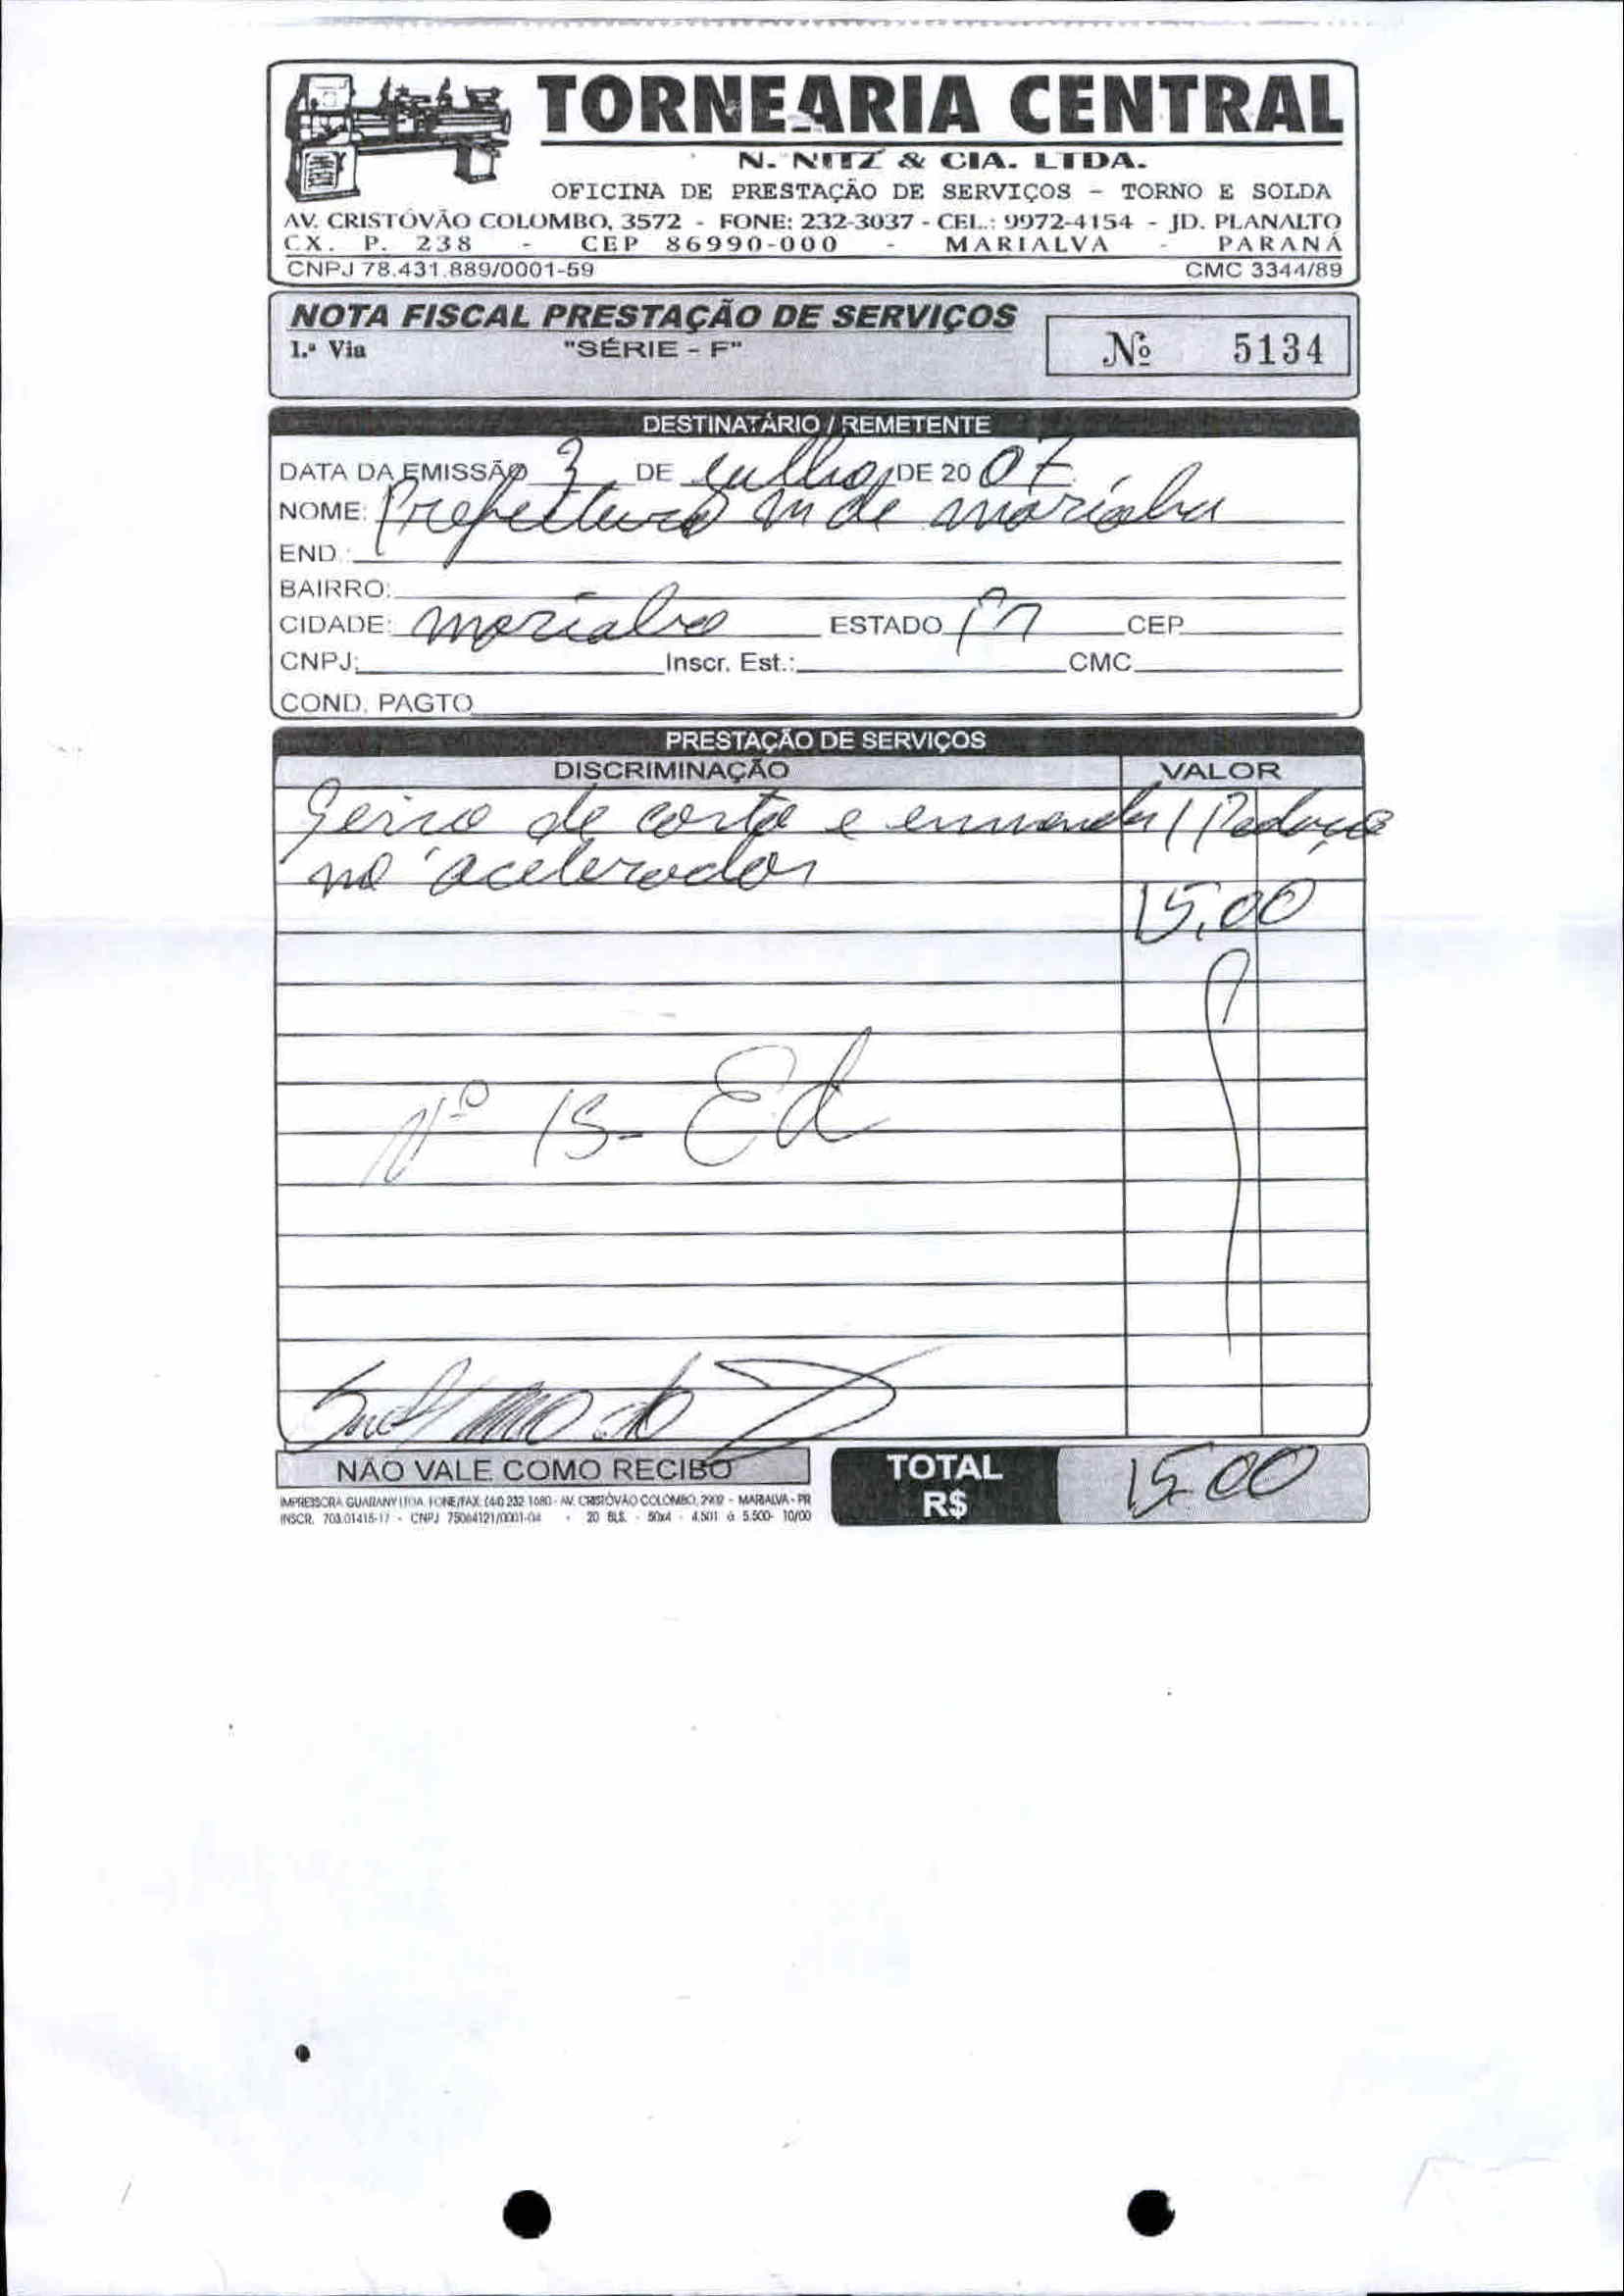 TORNEARIA CENTRAL
N. NITZ & CIA. LTDA.
OFICINA DE PRESTAÇÃO DE SERVIÇOS - TORNO E SOLDA
AV. CRISTÓVÃO COLOMBO, 3572 - FONE: 232-3037 - CEL.: 9972-4154 - JD. PLANALTO
CX. P. 238 - CEP 86990-000 - MARIALVA - PARANÁ
CNPJ 78.431.889/0001-59 CMC 3344/89
NOTA FISCAL PRESTAÇÃO DE SERVIÇOS
1.ª Via "SÉRIE - F" Nº 5134
DESTINATÁRIO / REMETENTE
DATA DA EMISSÃO 3 DE Julho DE 2007
NOME: Prefeitura M de marialva
END.:
BAIRRO:
CIDADE: marialva ESTADO Pr CEP
CNPJ: Inscr. Est.: CMC
COND. PAGTO
PRESTAÇÃO DE SERVIÇOS
DISCRIMINAÇÃO VALOR
de corta e emendar 1 Pedaço
no acelerador
15,00
Nº 15- Ed
NÃO VALE COMO RECIBO
TOTAL R$ 15,00
IMPRESSORA GUARANY LTDA. FONE/FAX: (44) 232 1680 - AV. CRISTÓVÃO COLOMBO, 2902 - MARIALVA - PR
INSCR. 703.01415-17 - CNPJ 75064121/0001-04 - 20 BLS. - 50x4 - 4.501 à 5.500- 10/00